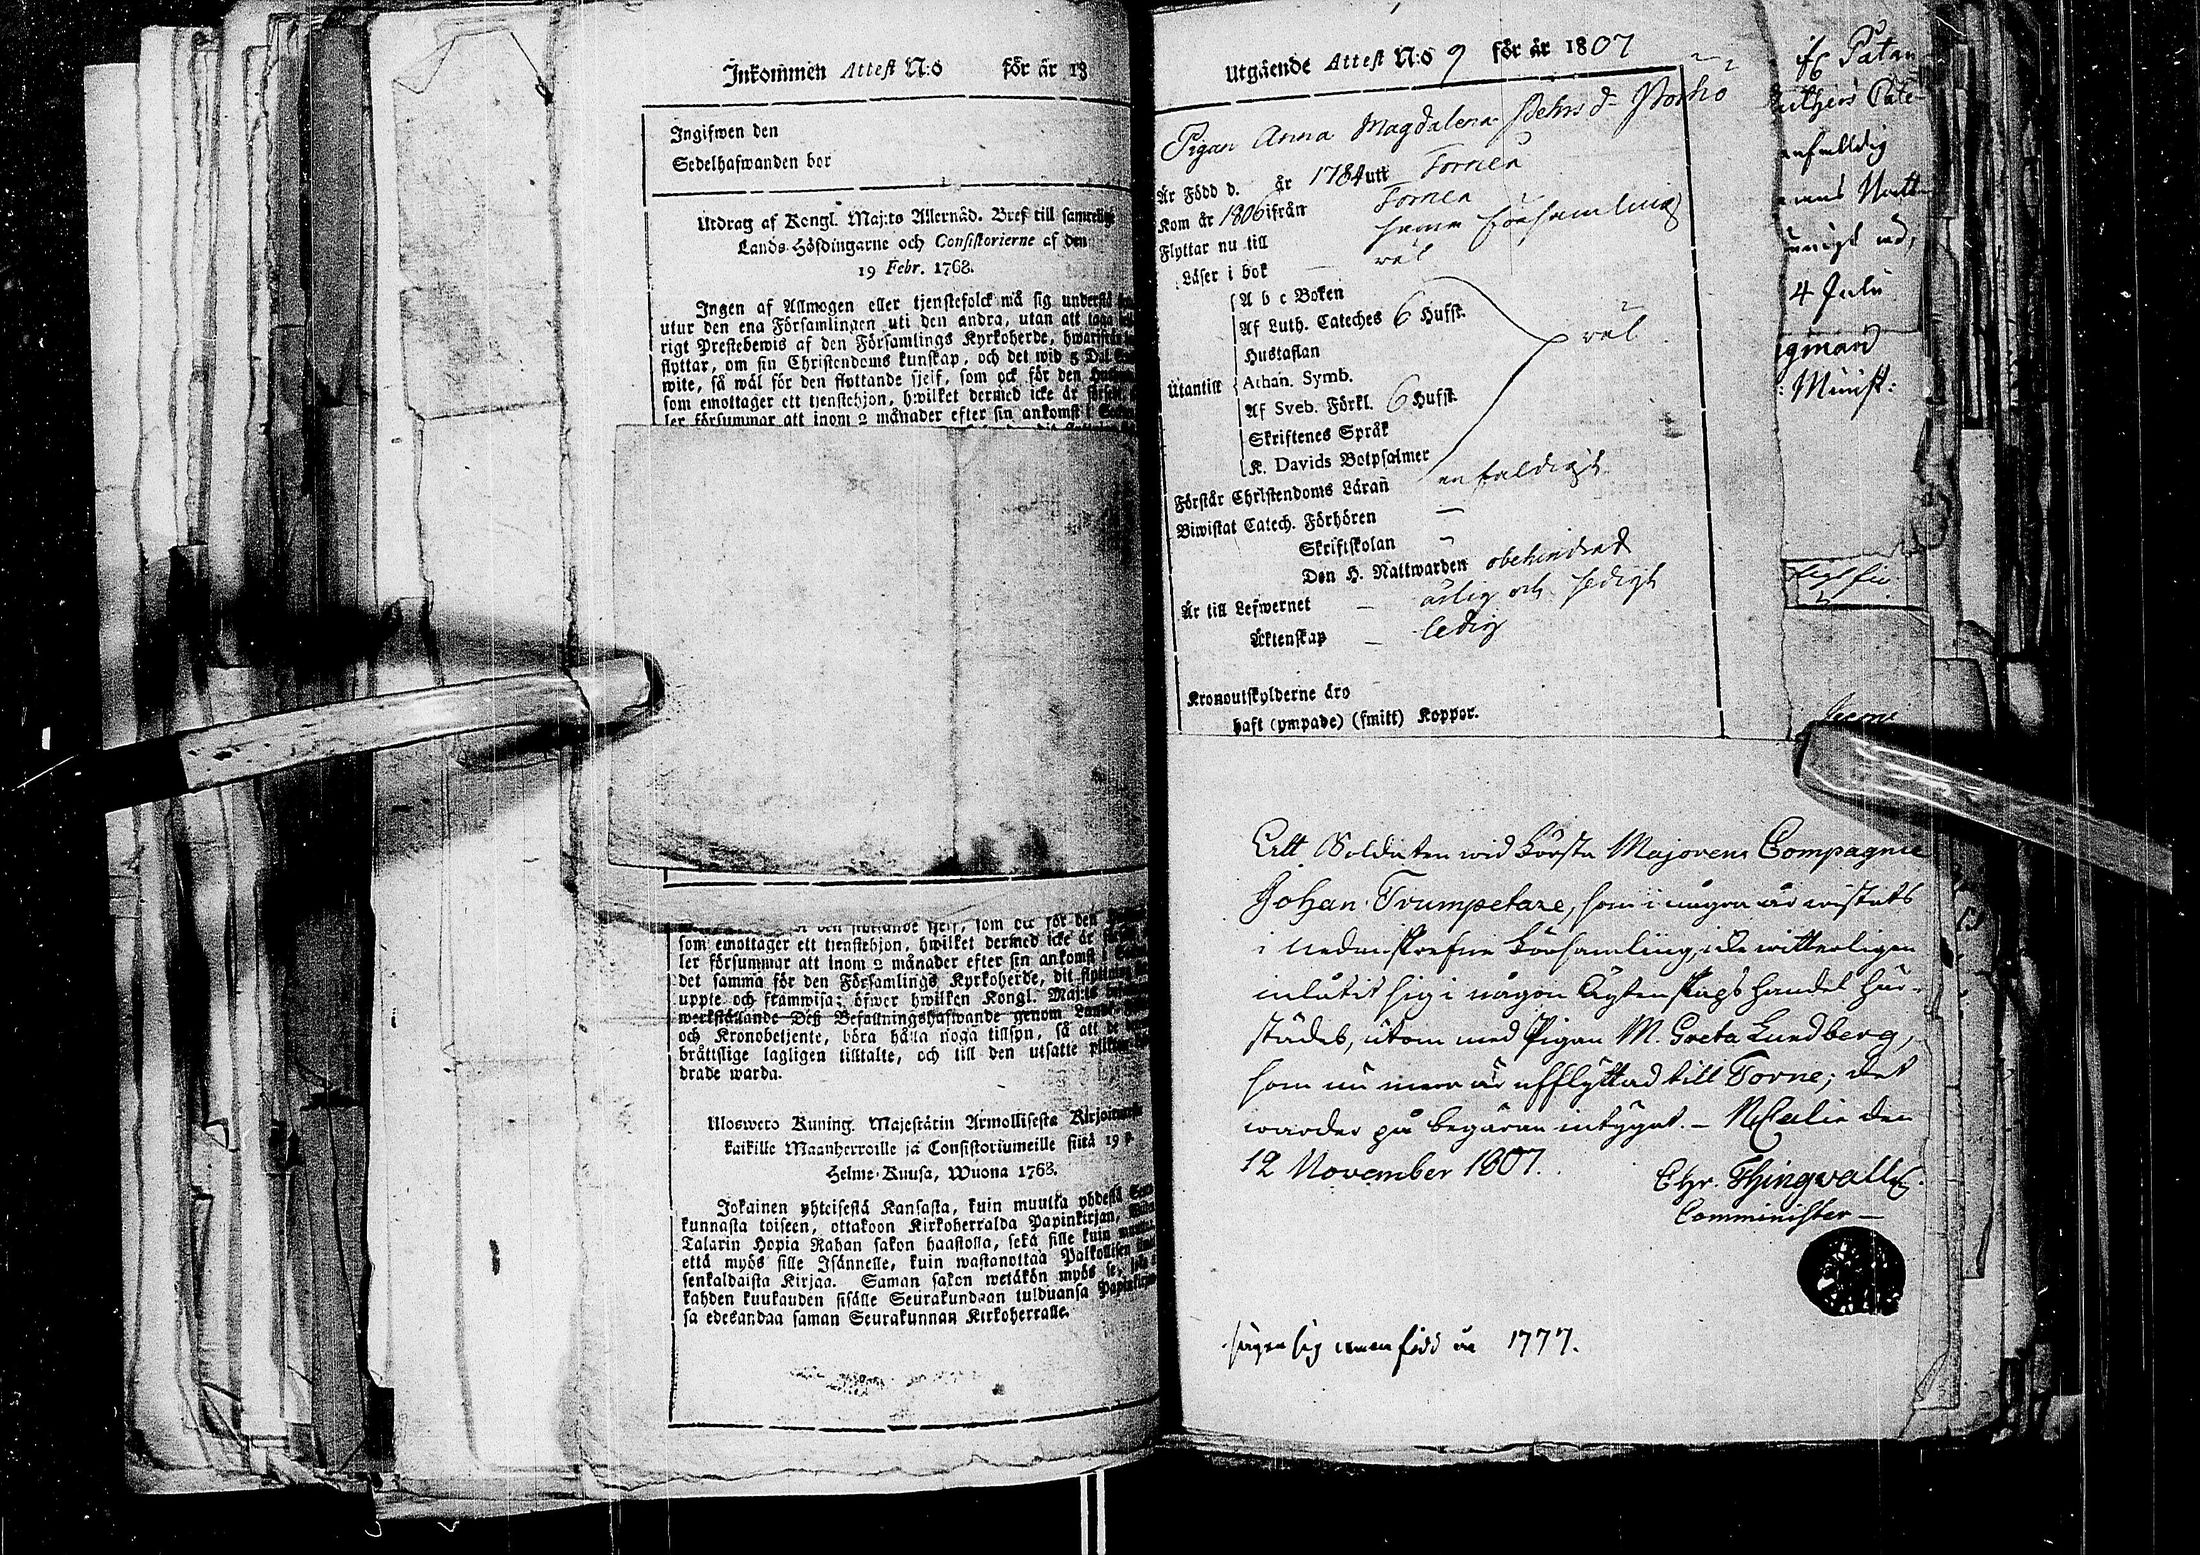 Inkommen Attest N:o för år 18
Ingifwen den
Sedelhafwanden bor
Utdrag af Kongl. Maj:ts Allernåd. Bref till samtelige
Lands-Höfdingarne och Consistorierne af den
19 Febr. 1768.
Ingen af Allmogen eller tjenstefolck må sig understå
utur den ena Församlingen uti den andra, utan att taga
rigt Prestebewis af den Församlings Kyrkoherde, hwarifrån
flyttar, om sin Christendoms kunskap, och det wid 5 Dal.
wite, så wäl för den flyttande sjelf, som ock för den
som emottager ett tjenstehjon, hwilket dermed icke är försedt
ler försummar att inom 2 månader efter sin ankomst i
som ock för den
som emottager ett tjenstehjon, hwilket dermed icke är
ler försummar att inom 2 månader efter sin ankomst i
det samma för den Församlings Kyrkoherde, dit flyttning
uppte och framwisa; öfwer hwilken Kongl. Maj:ts
werkställande Deß Befallningshafwande genom Lands
och Kronobetjente, böra hålla noga tillsyn, så att de
bråttslige lagligen tilltalte, och till den utsatte plikten
drade warda.
Uloswero Kuning. Majestätin Armollisesta Kirjoituxesta
kaikille Maanherroille ja Consistoriumeille siitä 19 p.
Helme-Kuusa, Wuona 1768.
Jokainen yhteisestä Kansasta, kuin muutta yhdestä
kunnasta toiseen, ottakoon Kirkoherralda Papinkirjan,
Talarin Hopia Rahan sakon haastolla, sekä sille kuin
että myös sille Isännelle, kuin wastanottaa Palkollisen
senkaldaista Kirjaa. Saman sakon wetäkön myös se, joka
kahden kuukauden sisälle Seurakundaan tulduansa Papinkirja
sa edesandaa saman Seurakunnan Kirkoherralle.
Utgående Attest N:o 9 för år 1807
Pigan Anna Magdalena Pehrsd- Porho
Är Född d. år 1784 uti Torneå
Kom år 1806 ifrån Torneå
Flyttar nu till samma församling
Läser i bok väl
A b c Boken
Af Luth. Cateches 6 Hufst.
Hustaflan väl
Utantill Athan. Symb.
Af Sveb. Förkl. 6 Hufst.
Skriftenes Språk
K. Davids Botpsalmer
Förstår Christendoms Läran enfaldigt
Biwistat Catech. Förhören —
Skriftskolan
Den H. Nattwarden obehindrad
Är till Lefwernet — ärlig och sedigt
Äktenskap — ledig
Kronoutskylderne äro
haft (ympade) (smitt) Koppor.
Patan
enfalldig
4 Julii
Minist:
Att Soldaten wid första Majorens Compagnie
Johan Trumpetare, som i någon år wistats
i nedanskrefne församling, icke witterligen
inlåtit sig i någon Ägtenskaps handel här-
städes, utom med Pigan M. Greta Lundberg,
som nu mera är afflyttad till Torne; det
warder på begäran intygat. — NCalix den
12 November 1807.
Chr. Thingvall
Comminister —
säger sig wara född år 1777.